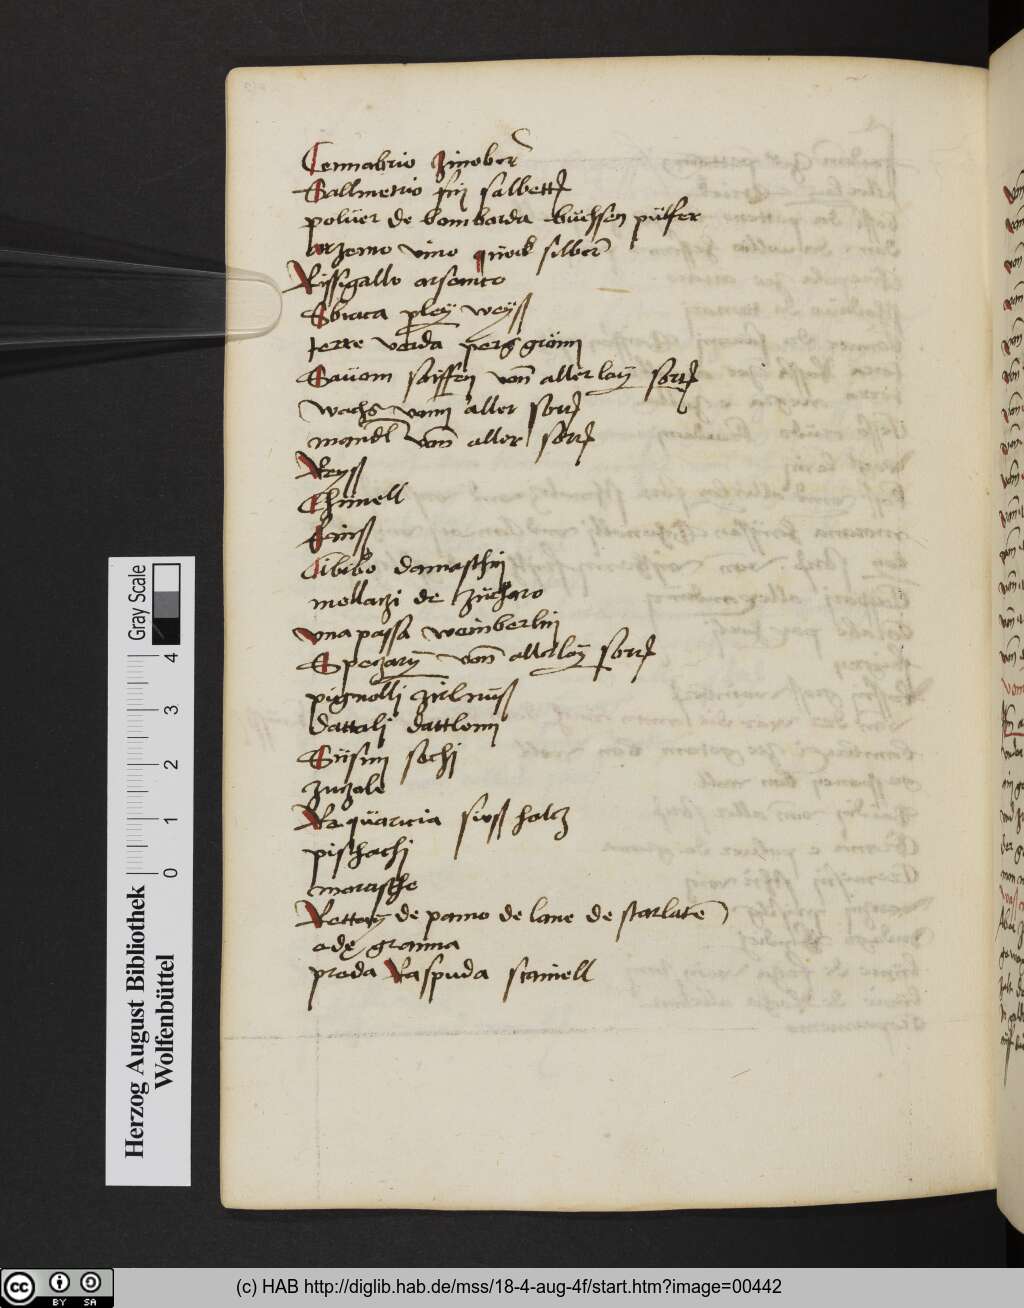 Cennabrio zinober
Sallmetrio fin salbetter
poluer de bombarda büchsen pülfer
arzento vino queck silber
Rissigallo arsenico
Sbiaca pley weyß
terre verda perg grönn
Sauom sayffen von aller lay sort
wachs vonn aller sort
mandl von aller sort
Reyß
Chimell
Einß
Cibibo damaschin
mellazi de zucharo
vna passa weinberlin
Spezary von allerlay sort
pignolli zirlnuß
dattali dattlenn
Susini sechi
zuzole
Requaricia sueß holtz
pischachi
marasche
Rottory de panno de lane de scarlate
ode granna
prada Raspuda stainell
Herzog August Bibliothek
Wolfenbüttel
Gray Scale
0 1 2 3 4
cc BY SA
(c) HAB http://diglib.hab.de/mss/18-4-aug-4f/start.htm?image=00442